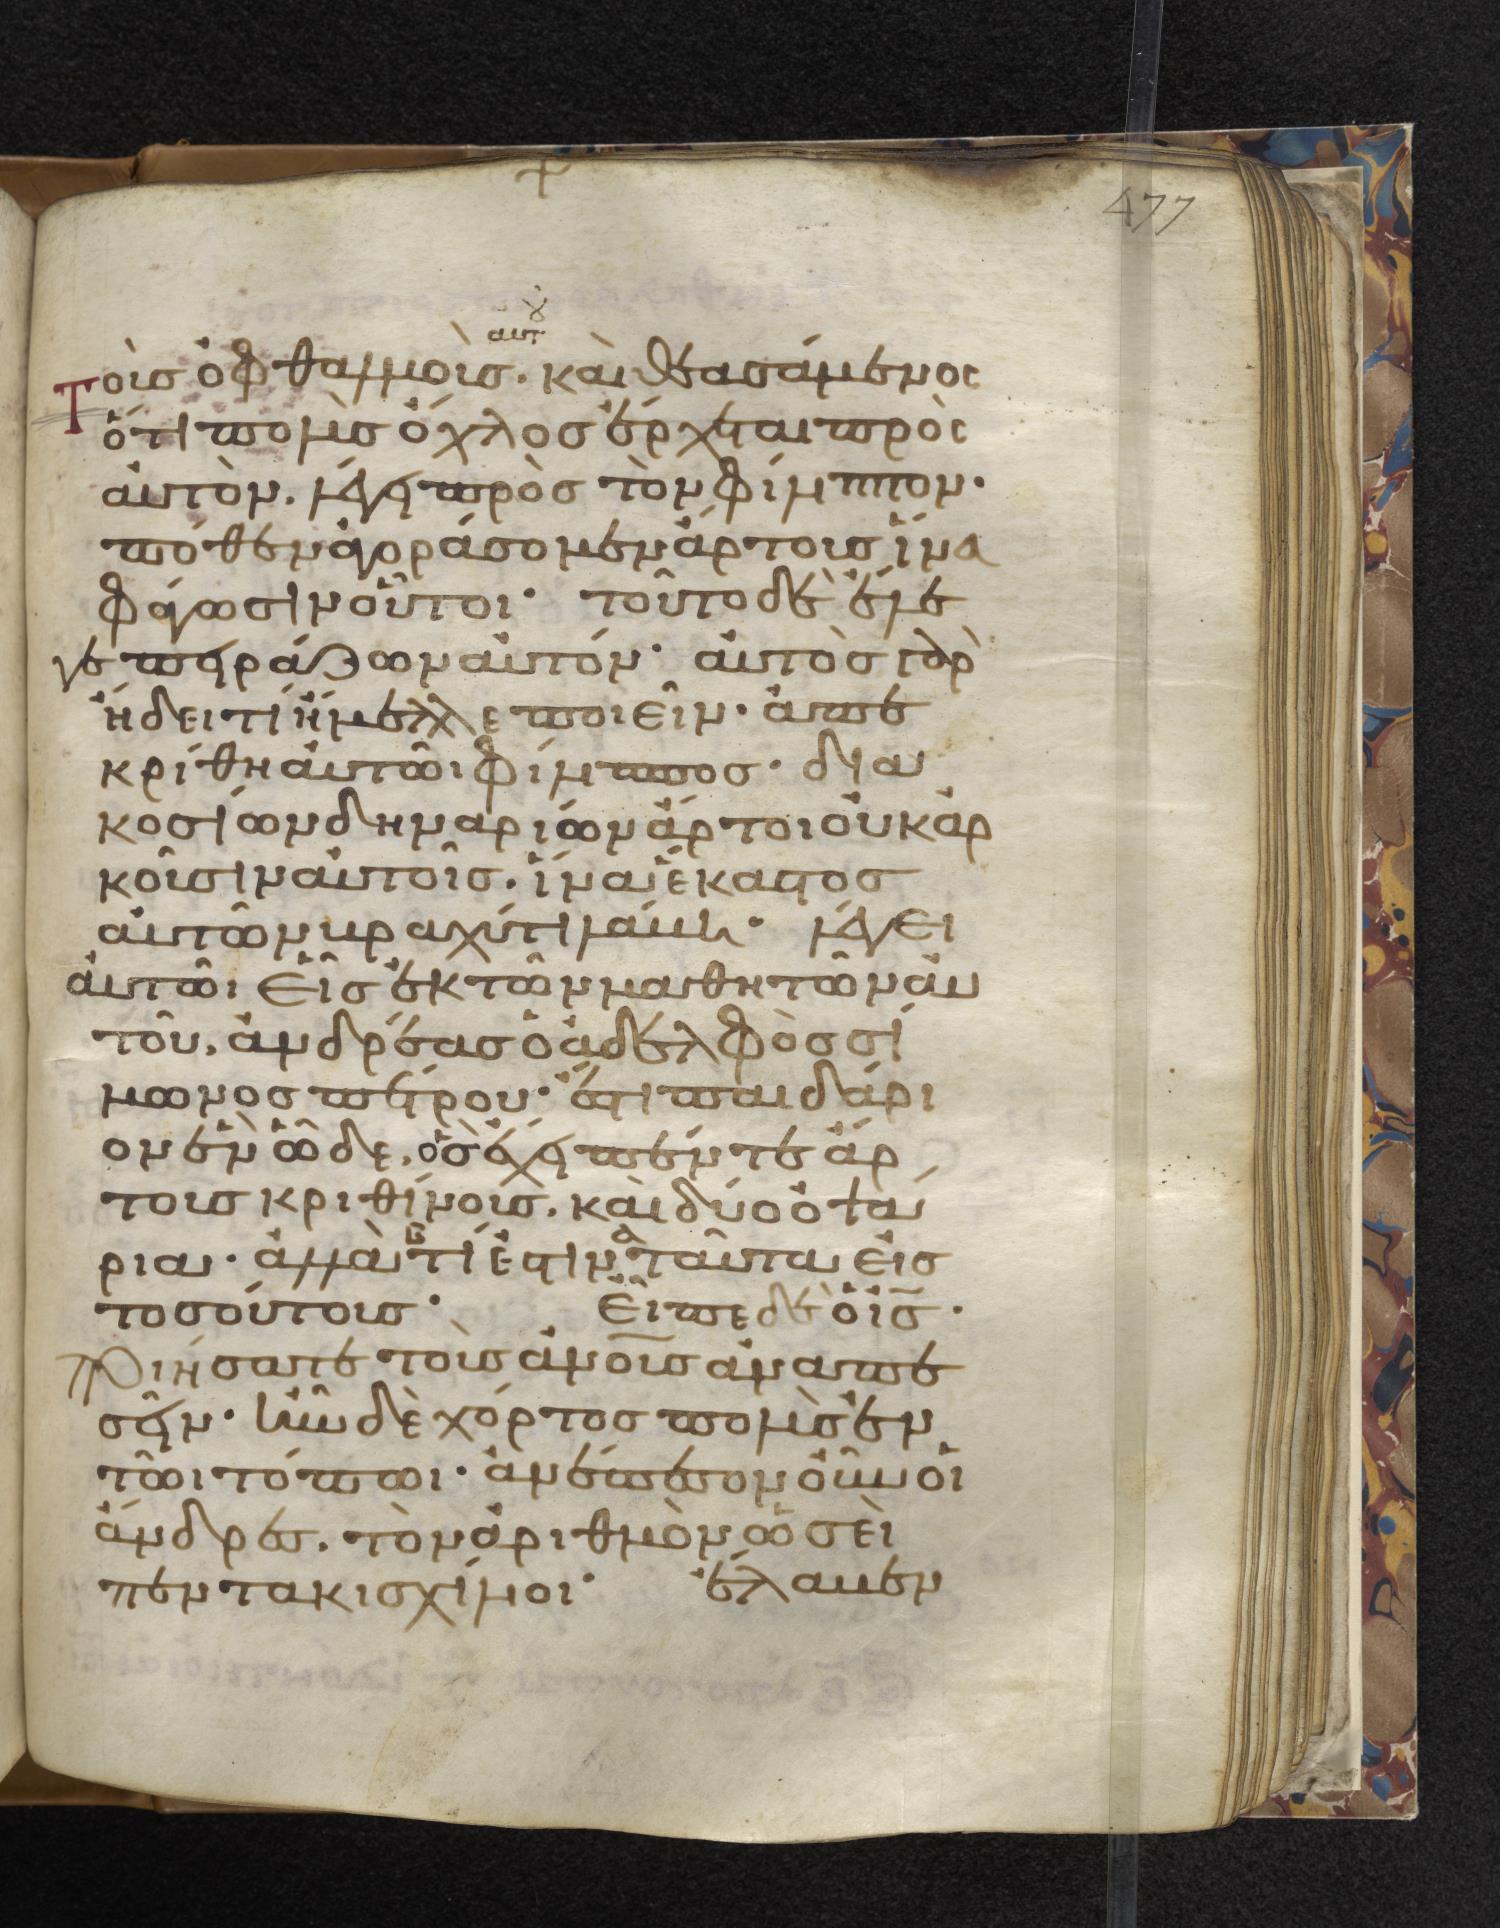 477
αυτου
τοὺσ ὀφθαλμοὺσ. καὶ θεασάμενοσ
ὅτι πολὺσ ὄχλοσ ἔρχεται πρὸσ
αὐτὸν. λέγει πρὸσ τὸν φίλιππον·
πόθεν ἀγοράσομεν ἄρτουσ ἵνα
φάγωσιν οὗτοι· τοῦτο δὲ ἔλε
γε πειράζων αὐτόν· αὐτὸσ γὰρ
ἤδει τί ἤμελλε ποιεῖν· ἀπε
κρίθη αὐτῶι φίλιπποσ· δια
κοσίων δηναρίων ἄρτοι οὐκ ἀρ
κοῦσιν αὐτοῖσ. ἵνα ἕκαστοσ
αὐτῶν βραχύ τι λάβη· λέγει
αὐτῶι εἷσ ἐκ τῶν μαθητῶν αὐ
τοῦ. ἀνδρέασ ὁ ἀδελφὸσ σί
μωνοσ πέτρου· ἔστι παιδάρι
ον ἓν ὧδε. ὃσ ἔχει πέντε ἄρ
τουσ κριθίνουσ. καὶ δύο ὀψά
ρια· ἀλλὰ β τί ἐστιν α ταῦτα εἰσ
τοσούτουσ· εἶπε δὲ ὁ ι̅σ̅.
ποιήσατε τοὺσ α̅ν̅ο̅υ̅σ̅ ἀναπε
σεῖν· ἦν δὲ χόρτοσ πολὺσ ἐν
τῶι τόπωι· ἀνέπεσον οὖν οἱ
ἄνδρεσ. τὸν ἀριθμὸν ὡσεὶ
πεντακισχίλιοι· ἔλαβεν